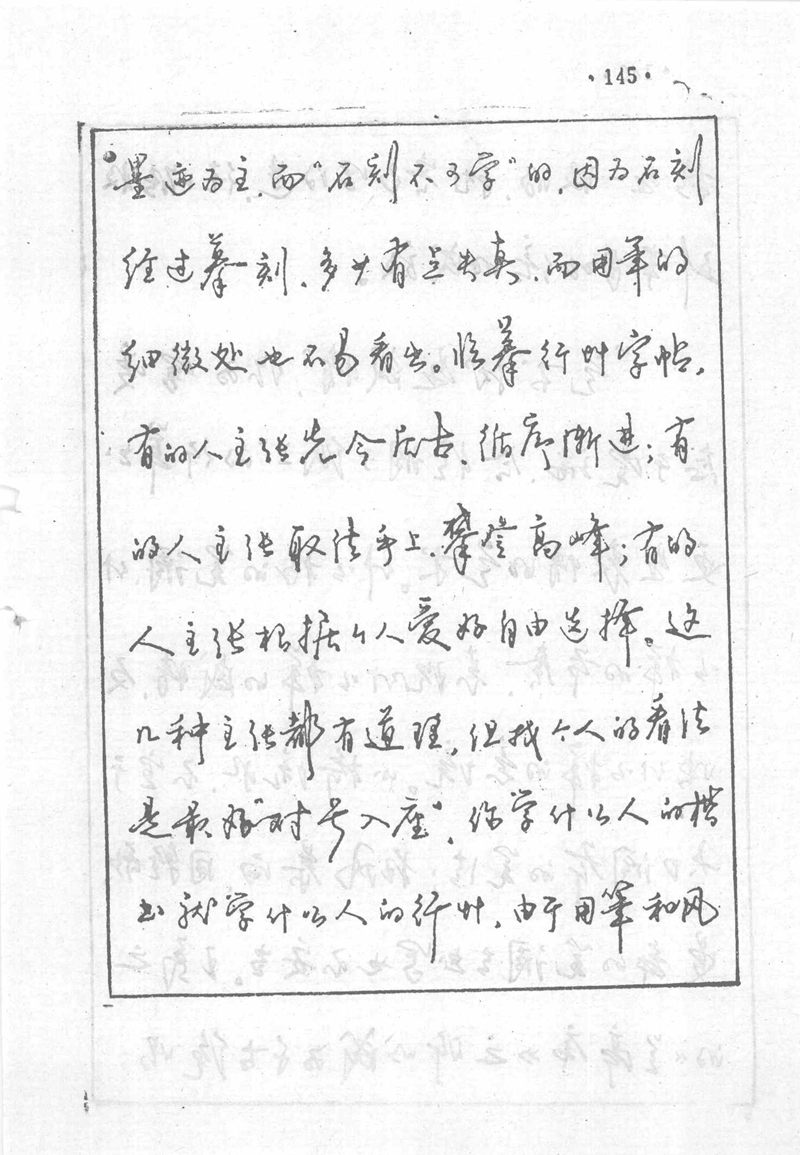 ·145·
墨迹为主，而“石刻不可学”的，因为石刻
经过摹刻，多少有点失真，而用笔的
细微处也不易看出。临摹行艸字帖，
有的人主张先今后古，循序渐进；有
的人主张取法乎上，攀登高峰；有的
人主张根据个人爱好自由选择。这
几种主张都有道理，但我个人的看法
是最好“对号入座”，你学什么人的楷
书就学什么人的行艸，由于用笔和风